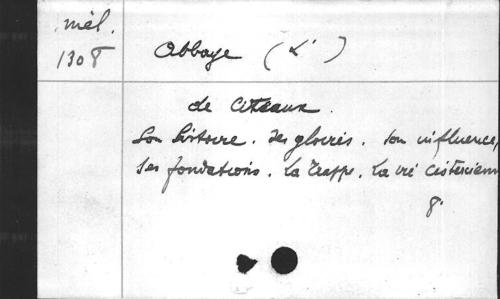 mél.
1308
Abbaye (L')
de Citeaux.
Son histoire. Ses gloires. Son influence,
Ses fondations. La Trappe. La vie cistercienn
8.